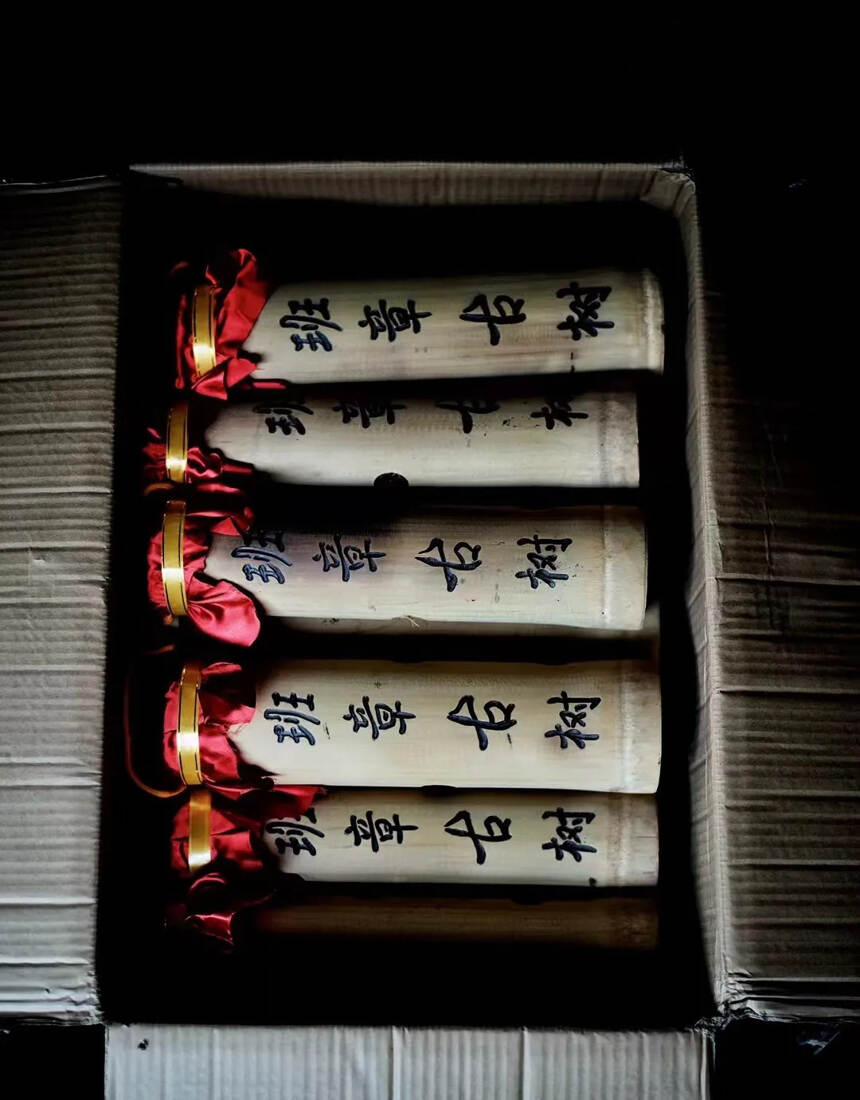 班章古树
班章古树
班章古树
班章古树
班章古树